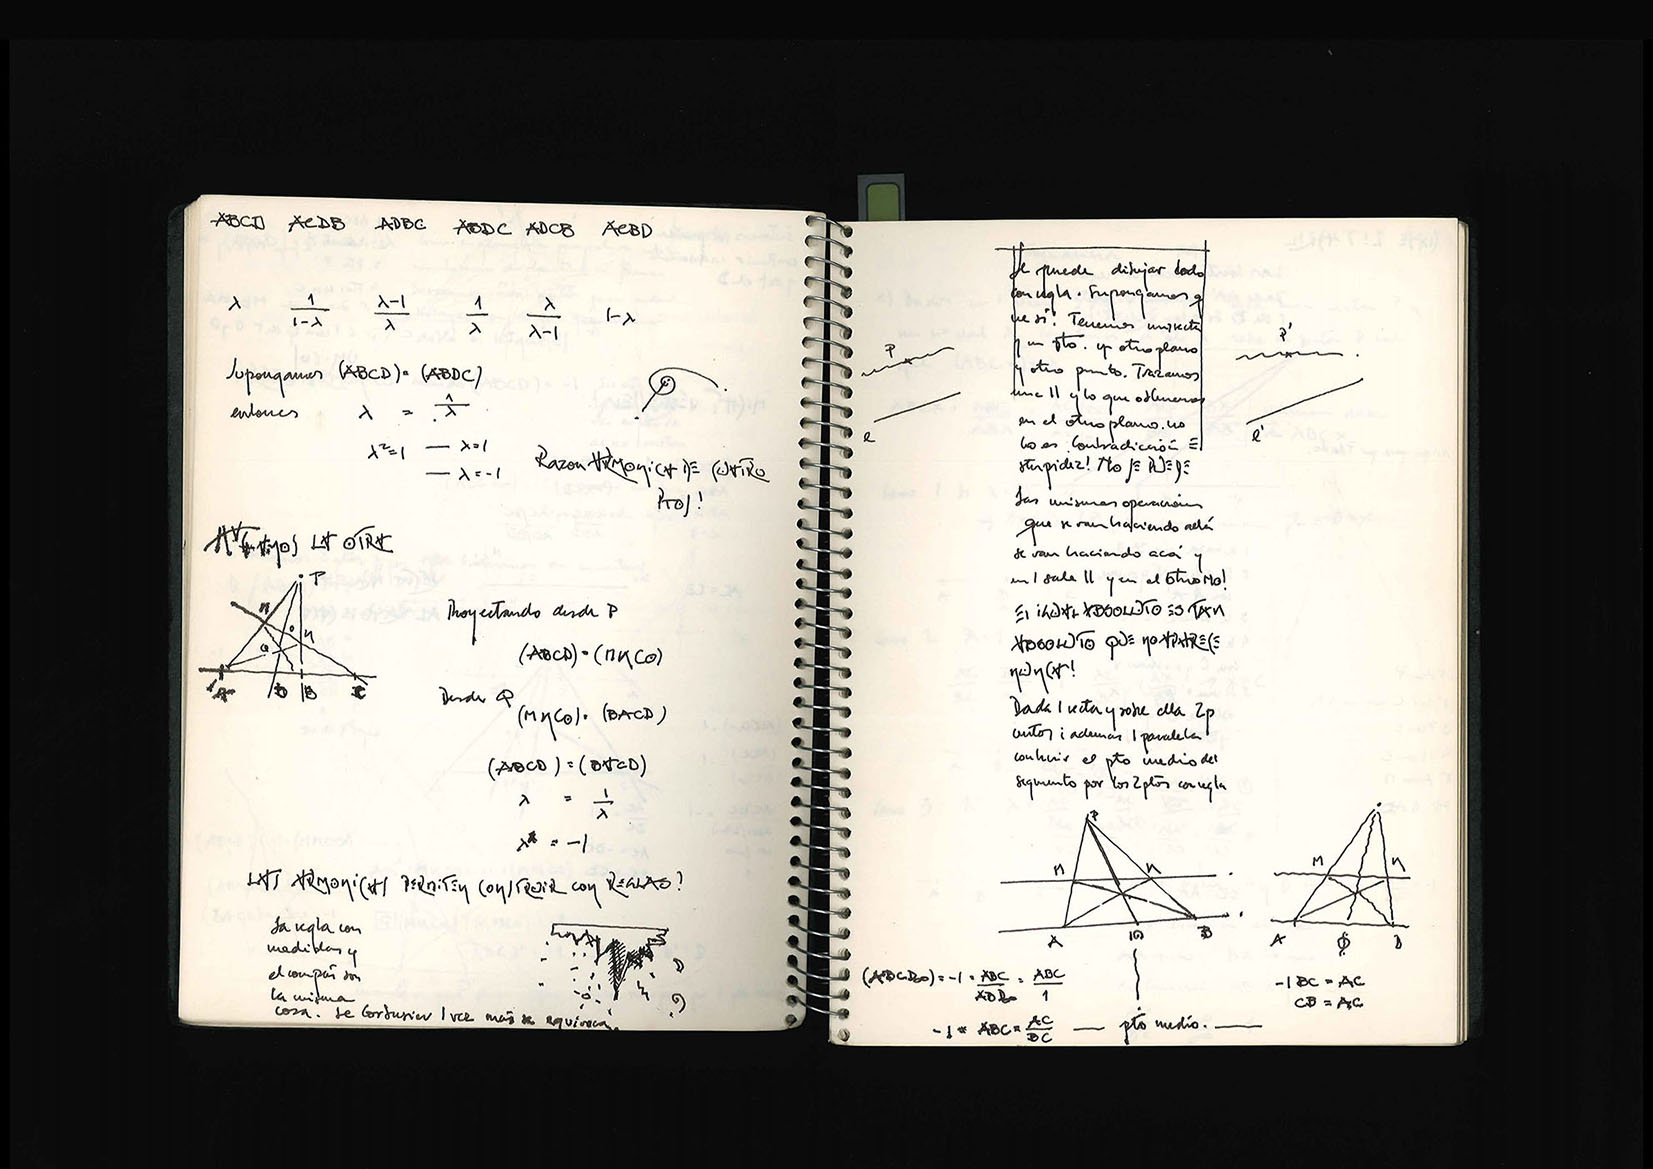 ABCD ACDB ADBC ABDC ADCB ACBD
λ 1/1-λ λ-1/λ 1/λ λ/λ-1 1-λ
Supongamos (ABCD) = (ABDC)
entonces λ = 1/λ
λ²=1 — λ=1
— λ=-1
Razon ARMONICA DE CUATRO
PTOS!
HAGAMOS LA OTRA
P
M
N
O
Q
A D B C
Proyectando desde P
(ABCD) = (MNCO)
Desde Q
(MNCO) = (BACD)
(ABCD) = (BACD)
λ = 1/λ
λ = -1
LAS ARMONICAS PERMITEN CONSTRUIR CON REGLAS?
La regla con
medidas y
el compás son
la misma
cosa. Le Corbusier 1 vez más se equivoca.
Se puede dibujar todo
con regla. Supongamos q
ue si! Tenemos una recta
y un pto. y otro plano
y otro punto. Trazamos
una || y lo que obtenemos
en el otro plano. no
lo es. Contradicción E
stupidez! No SE PUEDE
P
e
P'
e'
Las mismas operaciones
que se van haciendo allá
se van haciendo acá y
en 1 sale || y en el otro No!
El IGUAL ABSOLUTO ES TAN
ABSOLUTO QUE NO APARECE
NUNCA!
Dada 1 recta y sobre ella 2 p
untos i además 1 paralela
construir el pto medio del
segmento por los 2 ptos con regla
P
M N
A B
M N
A B
(ABCD∞) = -1 = ABC/ABD∞ = ABC/1
-1 = ABC = AC/BC — pto medio. —
-1 BC = AC
CB = AC